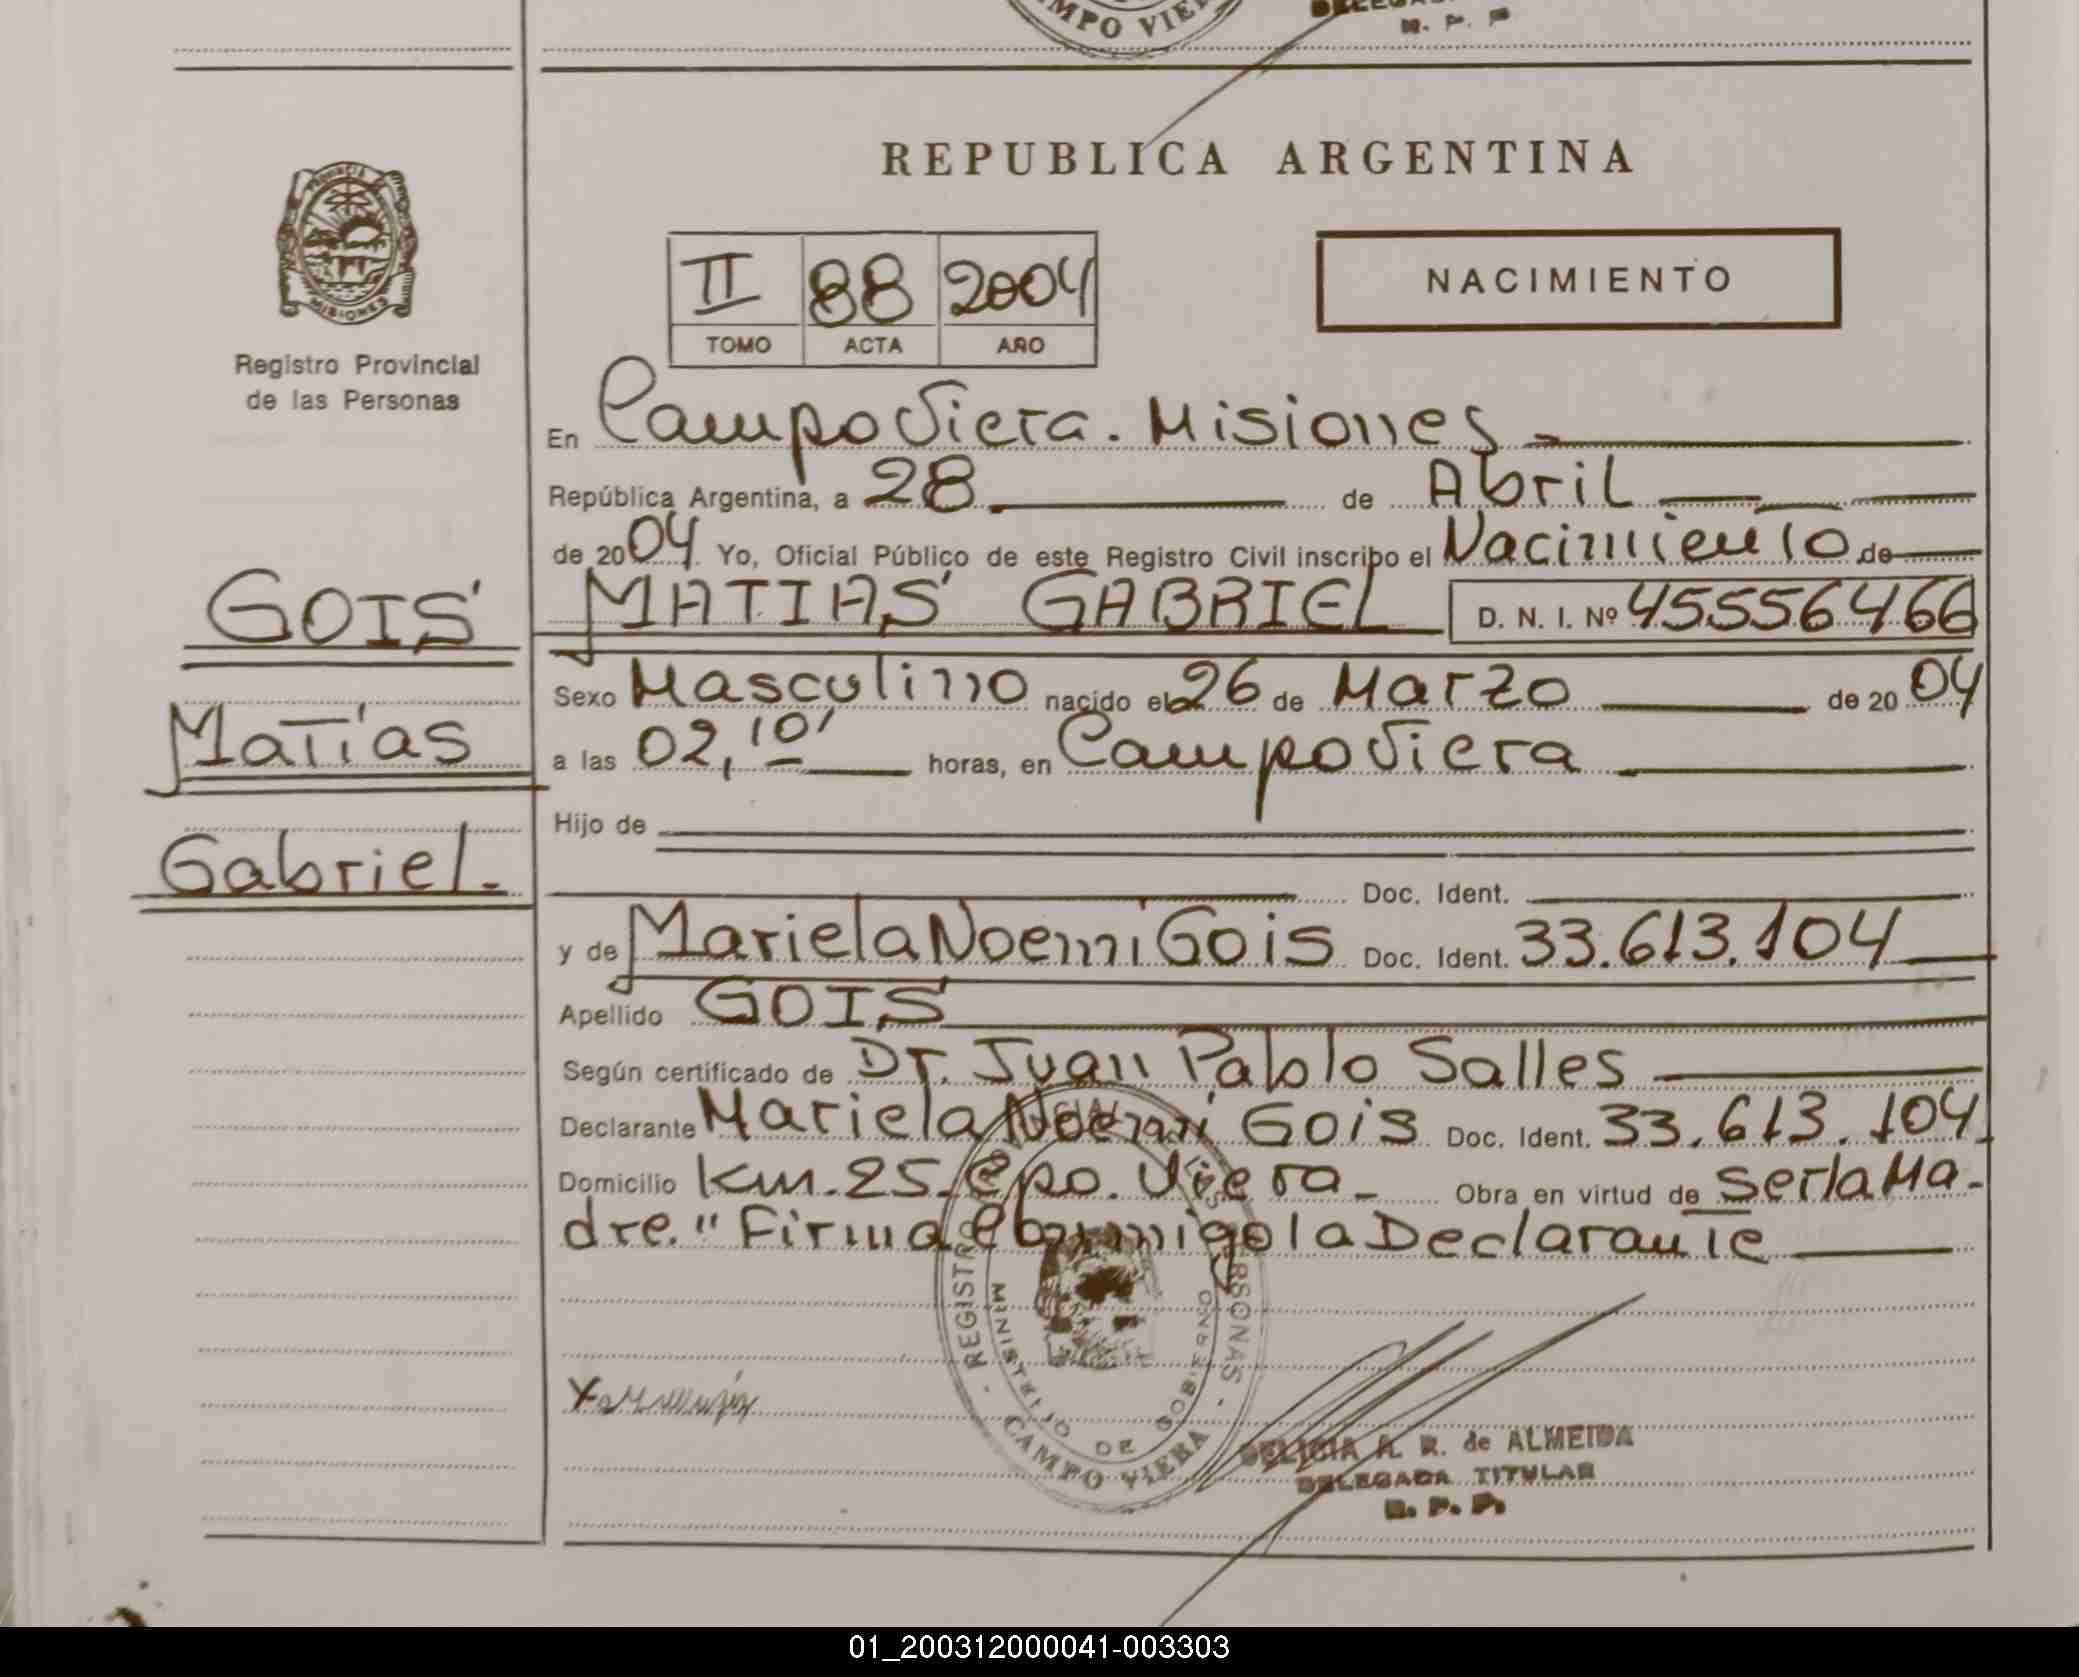 CAMPO VIE
R. P. P
REPUBLICA ARGENTINA
PROVINCIA DE
MISIONES
Registro Provincial
de las Personas
II 88 2004
TOMO ACTA AÑO
NACIMIENTO
En Campo Viera. Misiones
República Argentina, a 28 de Abril
de 2004 Yo, Oficial Público de este Registro Civil inscribo el Nacimiento de
GOIS
MATIAS GABRIEL D. N. I. Nº 45556466
Sexo Masculino nacido el 26 de Marzo de 2004
Matías
a las 02,10' horas, en Campo Viera
Hijo de
Gabriel.
Doc. Ident.
y de Mariela Noemi Gois Doc. Ident. 33.613.104
Apellido GOIS
Según certificado de Dr. Juan Pablo Salles
Declarante Mariela Noemi Gois Doc. Ident. 33.613.104
Domicilio Km. 25. Cpo. Viera Obra en virtud de ser la Ma-
dre." Firma Conmigo la Declarante
REGISTRO PERSONAS
MINISTERIO DE GOBIERNO
CAMPO VIERA
DELICIA A. R. de ALMEIDA
DELEGADA TITULAR
R. P. P.
01_200312000041-003303